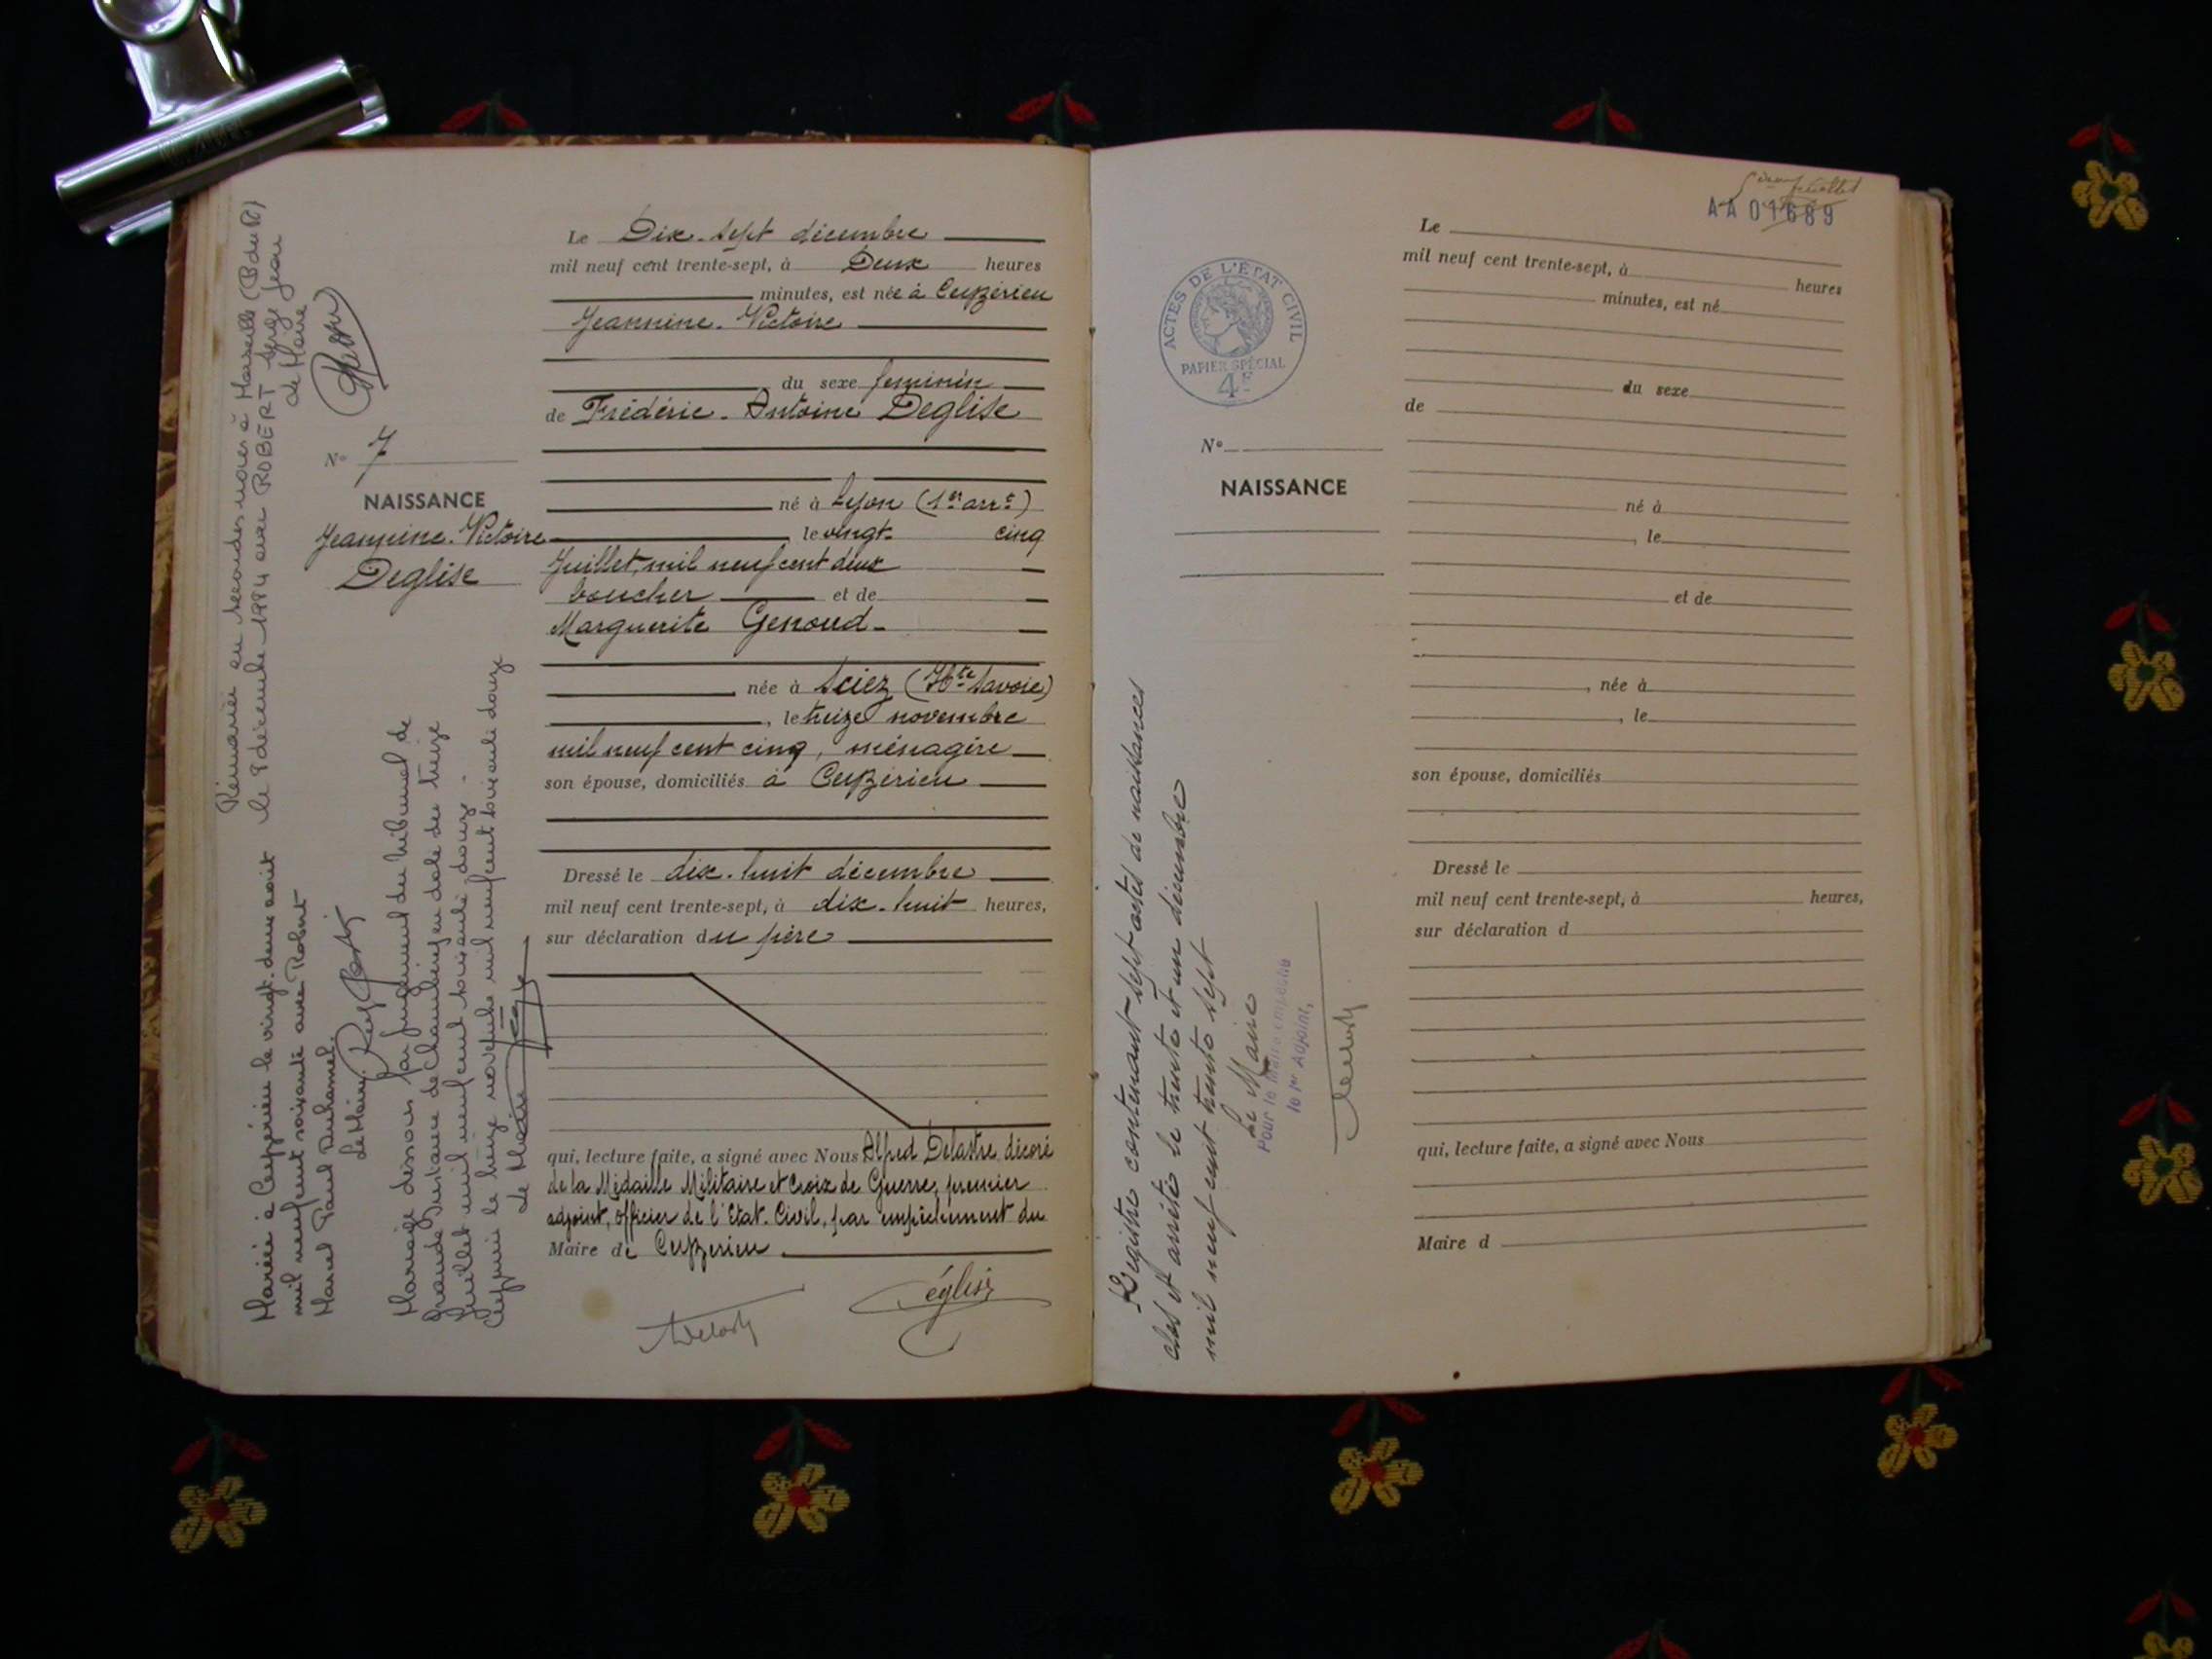 Remariée en secondes noces à Marseille (B du R)
le 8 décembre 1984 avec ROBERT Serge Jean
de Maire
N° 7
NAISSANCE
Jeannine-Victoire
Deglise
Mariée à Ceyzérieu le vingt-deux août
mil neuf cent soixante avec Robert
Marcel Paul Duhamel.
Le Maire
Mariage dissous par jugement du tribunal de
Grande Instance de Chambéry en date du treize
Juillet mil neuf cent soixante douze -
Ceyzérieu le treize novembre mil neuf cent soixante douze
Le Maire
Le Dix-sept décembre
mil neuf cent trente-sept, à Deux heures
minutes, est née à Ceyzérieu
Jeannine-Victoire
du sexe féminin
de Frédéric-Antoine Deglise
né à Lyon (1er arrt)
, le vingt- cinq
Juillet, mil neuf cent deux
boucher et de
Marguerite Genoud-
née à Sciez (Hte Savoie)
, le treize novembre
mil neuf cent cinq, ménagère
son épouse, domiciliés à Ceyzérieu
Dressé le dix-huit décembre
mil neuf cent trente-sept, à dix-huit heures,
sur déclaration du père
qui, lecture faite, a signé avec Nous Alfred Delastre, décoré
de la Médaille Militaire et Croix de Guerre, premier
adjoint, officier de l'Etat-Civil, par empêchement du
Maire de Ceyzerieu
Déglise
AA 01689
ACTES DE L'ÉTAT CIVIL
PAPIER SPÉCIAL
4F
N°
NAISSANCE
Registre contenant sept actes de naissances
clos et arrêté le trente et un décembre
mil neuf cent trente sept
Le Maire
Pour le Maire empêché
le 1er Adjoint,
Le
mil neuf cent trente-sept, à heures
minutes, est né
du sexe
de
né à
, le
et de
, née à
, le
son épouse, domiciliés
Dressé le
mil neuf cent trente-sept, à heures,
sur déclaration d
qui, lecture faite, a signé avec Nous
Maire d